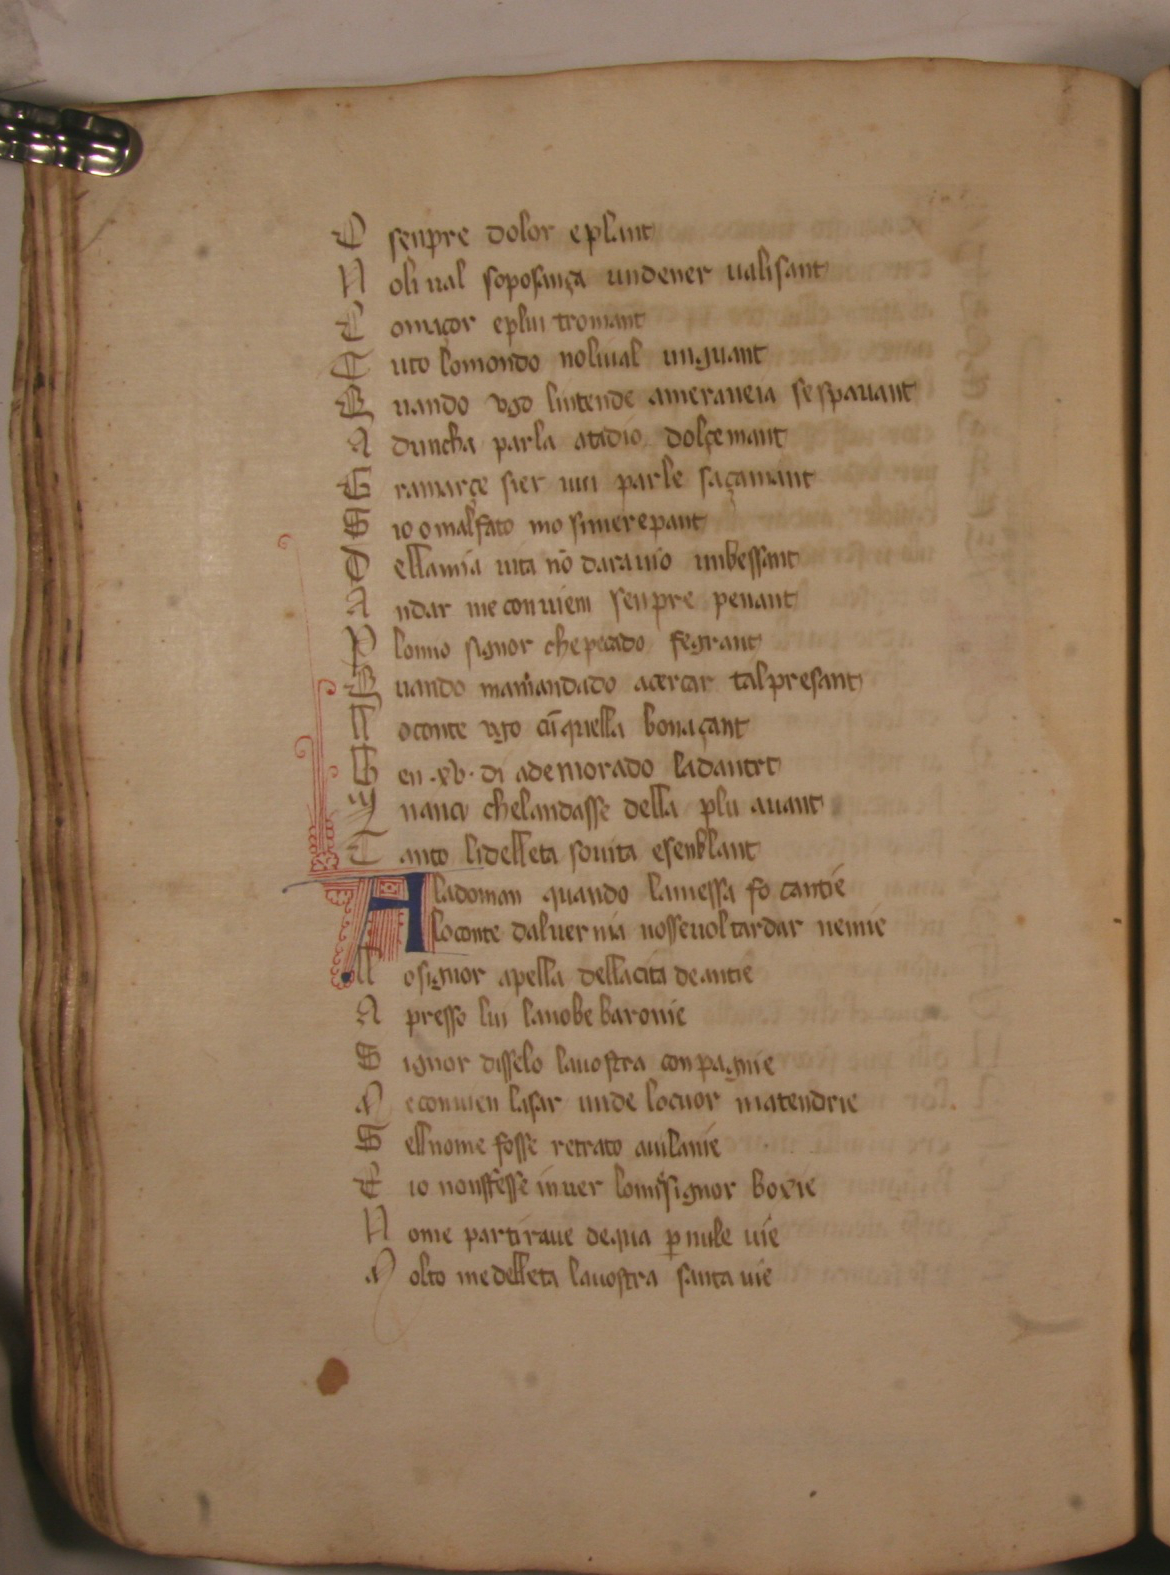 O senpre dolor e plant
N oli val soposança un dener valisant
E o maçor e plui tromant
T uto lo mondo no li val un guant
Q uando vgo lintende a meraveia se spavant
A duncha parla a tadio dolçemant
G ramarçe sier vui parle saçamant
S io o malfato mo simerepant
D ella mia vita nō daravio un bessant
A ndar me conviem senpre penant
P lo mio signor che pecado fe grant
Q uando mamandado a cercar tal presant
L o conte vgo cū quella bona çant
B en .xv. di ademorado la dantrt
I nançi chel andasse della plu avant
T anto li delleta so vita e senblant
A la doman quando la messa fo cantie
A lo conte dalvernia nosse vol tardar nemie
L o signor apella della cita de antie
A presse lui la nobe baronie
S ignor disse lo la vostra conpagnie
M e convien lasar unde lo cuor matendrie
S ell nome fosse retrato a vilanie
E io nonffesse in ver lo mēsignor boxie
N o me partirave de qua p mile vie
M olto me delleta la vostra santa vie